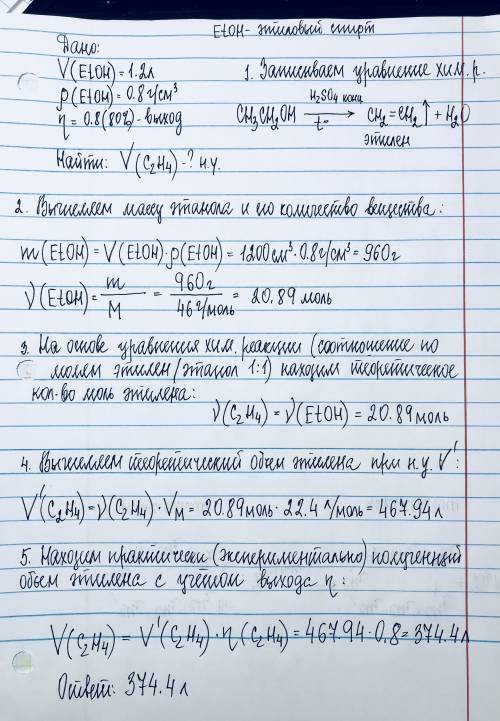 EtOH - этиловый спирт
Дано:
V(EtOH) = 1.2л
ρ(EtOH) = 0.8 г/см³
η = 0.8 (80%) - выход
Найти: V(C₂H₄) - ? н.у.
1. Записываем уравнение хим. р.
CH₃CH₂OH —H₂SO₄ конц, t°→ CH₂=CH₂↑ + H₂O
этилен
2. Вычисляем массу этанола и его количество вещества:
m(EtOH) = V(EtOH)·ρ(EtOH) = 1200см³·0.8г/см³ = 960г
ν(EtOH) = m/M = 960г/46г/моль = 20.89 моль
3. На основе уравнения хим. реакции (соотношение по
молям этилен/этанол 1:1) находим теоретическое
кол-во моль этилена:
ν(C₂H₄) = ν(EtOH) = 20.89 моль
4. Вычисляем теоретический объем этилена при н.у. V':
V'(C₂H₄) = ν(C₂H₄)·Vм = 20.89 моль · 22.4 л/моль = 467.94 л
5. Находим практически (экспериментально) полученный
объем этилена с учётом выхода η:
V(C₂H₄) = V'(C₂H₄)·η(C₂H₄) = 467.94·0.8 = 374.4 л
Ответ: 374.4 л